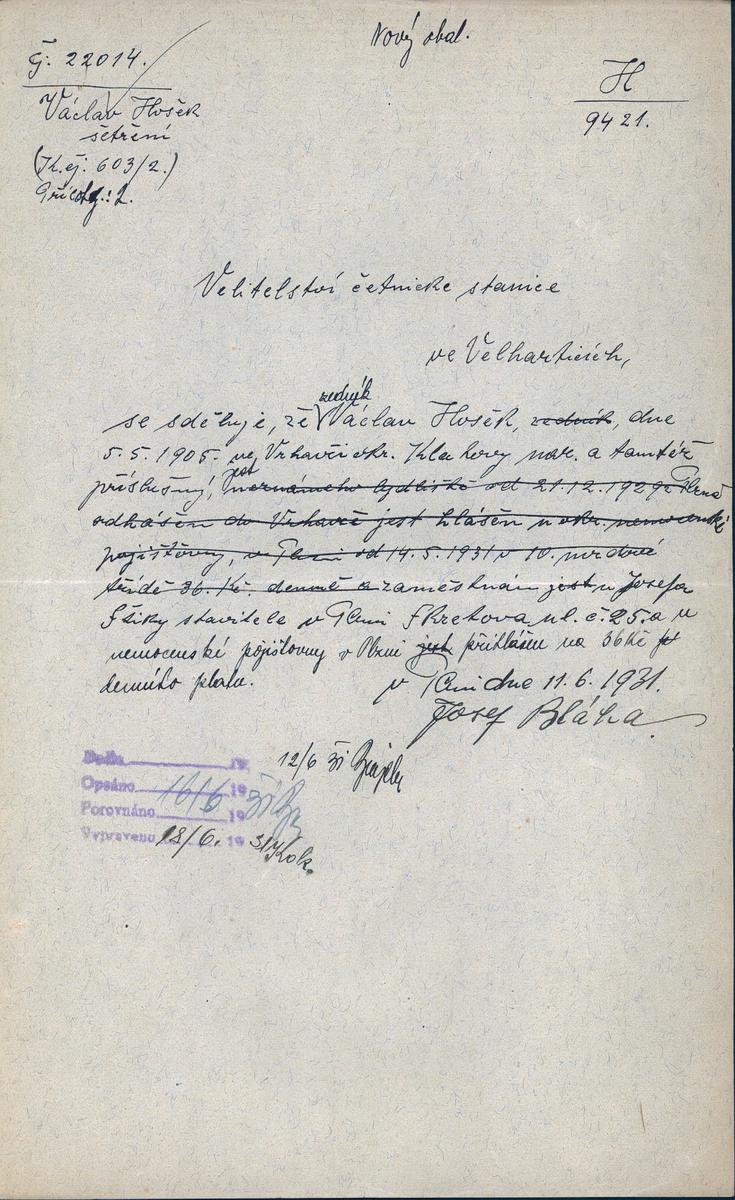 Nový obal.
Č: 22014.
Václav Hošek
šetření
(K.ej: 603/2.)
H
9421.
Velitelství četnické stanice
ve Velharticích,
zedník
se sděluje, že Václav Hošek, zedník, dne
5.5.1905. ve Vrhavči okr. Klatovy nar. a tamtéž
jest
příslušný, neznámého bydliště od 21.12.1929 z Plzně
odhlášen do Vrhavče jest hlášen u okr. nemocenské
pojišťovny, v Plzni od 14.5.1931 v 10. mzdové
třídě 36.Kč. denně a zaměstnán jest u Josefa
Šiky stavitele v Plzni Skretova ul. č. 25. a u
nemocenské pojišťovny v Plzni jest přihlášen na 36 Kč
denního platu.
v Plzni dne 11.6.1931.
Josef Bláha
12/6 31
Došlo 19
Opsáno 16/6 19 31
Porovnáno 19
Vypraveno 18/6. 19 31 Kok.